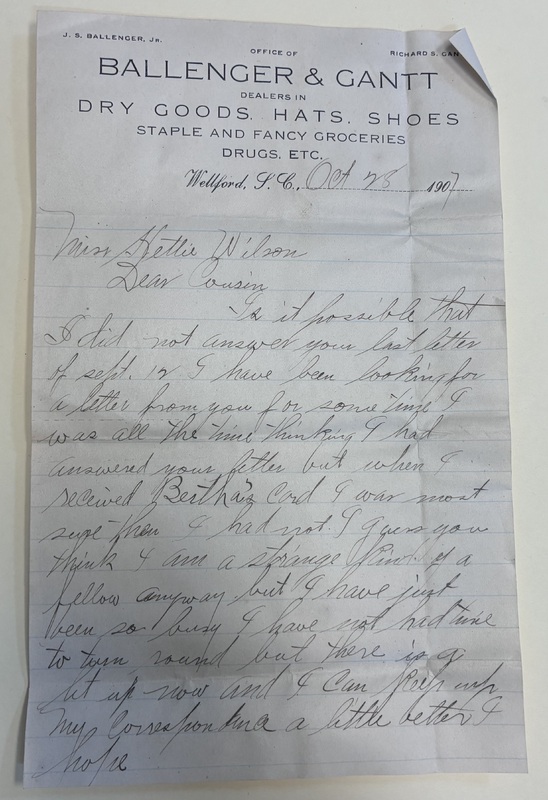 J. S. BALLENGER, JR.
OFFICE OF
RICHARD S. GAN
BALLENGER & GANTT
DEALERS IN
DRY GOODS, HATS, SHOES
STAPLE AND FANCY GROCERIES
DRUGS, ETC.
Wellford, S. C., Oct 28 1907
Miss Hettie Wilson
Dear Cousin
Is it possible that
I did not answer your last letter
of sept. 12 I have been looking for
a letter from you for some time I
was all the time thinking I had
answered your letter but when I
received Bertha's Card I was most
sure then I had not. I guess you
think I am a strange kind of a
fellow anyway but I have just
been so busy I have not had time
to turn round but there is a
let up now and I can keep up
my Correspondence a little better I
hope